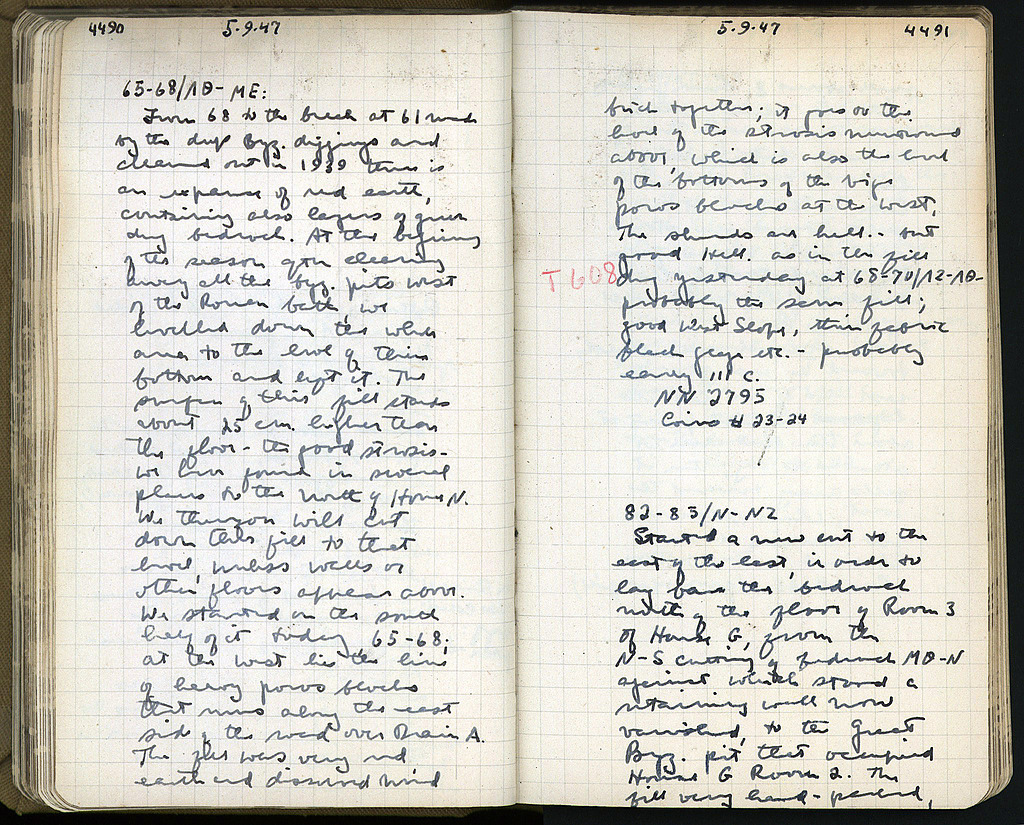 4490 5.9.47
65-68/ΛΘ-ΜΕ:
From 68 to the break at 61 made
by the deep Byz. diggings and
cleaned out in 1939 there is
an expanse of red earth,
containing also layers of green
dug bedrock. At the beginning
of the season after clearing
away all the Byz. pits west
of the Roman bath, we
levelled down the whole
area to the level of their
bottom and left it. The
surface of this fill stands
about 25 cm. higher than
the floor - the good strosis -
we have found in several
places to the north of House N.
We therefore will cut
down this fill to that
level, unless walls or
other floors appear above.
We started on the south
half of it today, 65-68;
at the west lie the line
of heavy poros blocks
that runs along the east
side of the road over Drain A.
The fill was very red
earth and dissolved mud
5.9.47 4491
brick together; it goes to the
level of the strosis mentioned
above, which is also the level
of the bottoms of the big
poros blocks at the west.
The sherds are hell. - but
good Hell. as in the fill
T 608
dug yesterday at 68-70/ΛΖ-ΛΘ-
probably the same fill;
good West Slope, thin fabric
black glaze etc. - probably
early III C.
NN 2795
Coins # 23-24
82-83/Ν-ΝΖ
Started a new cut to the
east of the last, in order to
lay bare the bedrock
north of the floor of Room 3
of House G, from the
N-S cutting of bedrock ΜΘ-Ν
against which stood a
retaining wall now
vanished, to the Great
Byz. pit that occupied
House G Room 2. The
fill very hard-packed,